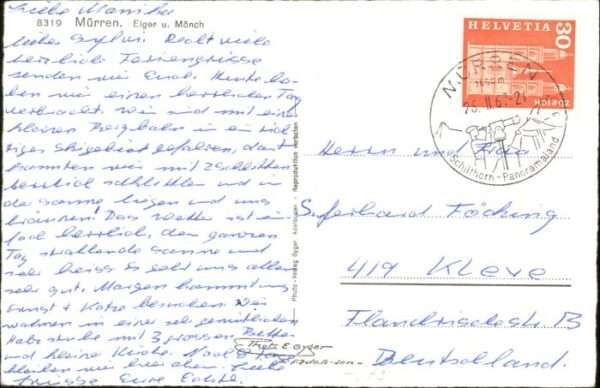 Liebe Monika
8319 Mürren. Eiger u. Mönch
lieber Recht viele
herzliche Feriengrüsse
senden wir Euch. Heute ha-
ben wir einen herrlichen Tag
verbracht. Wir sind mit einer
kleinen Bergbahn in ein
Skigebiet gefahren, dort
konnten wir mit 2 Schlitten
herrlich schlitteln und in
der Sonne liegen und uns
bräunen. Das Wetter ist ein-
fach herrlich, den ganzen
Tag strahlende Sonne und
sehr heiss. Es geht uns allen
sehr gut. Morgen kommt
+ Katze besuchen. Wir
wohnen in einer sehr gemütlichen
mit 3 grossen Betten
und kleine Küche. Noch 8 Tage
bleiben wir hier oben. Liebe
Grüsse Eure
Photo-Verlag Gyger Adelboden - Reproduktion verboten
HELVETIA
30
ZÜRICH
MÜRREN
1650 m
Schilthorn-Panoramaland
Herrn und Frau
Föcking
419 Kleve
Flandrischestr. 13
Deutschland.
E. Gyger
Adelboden